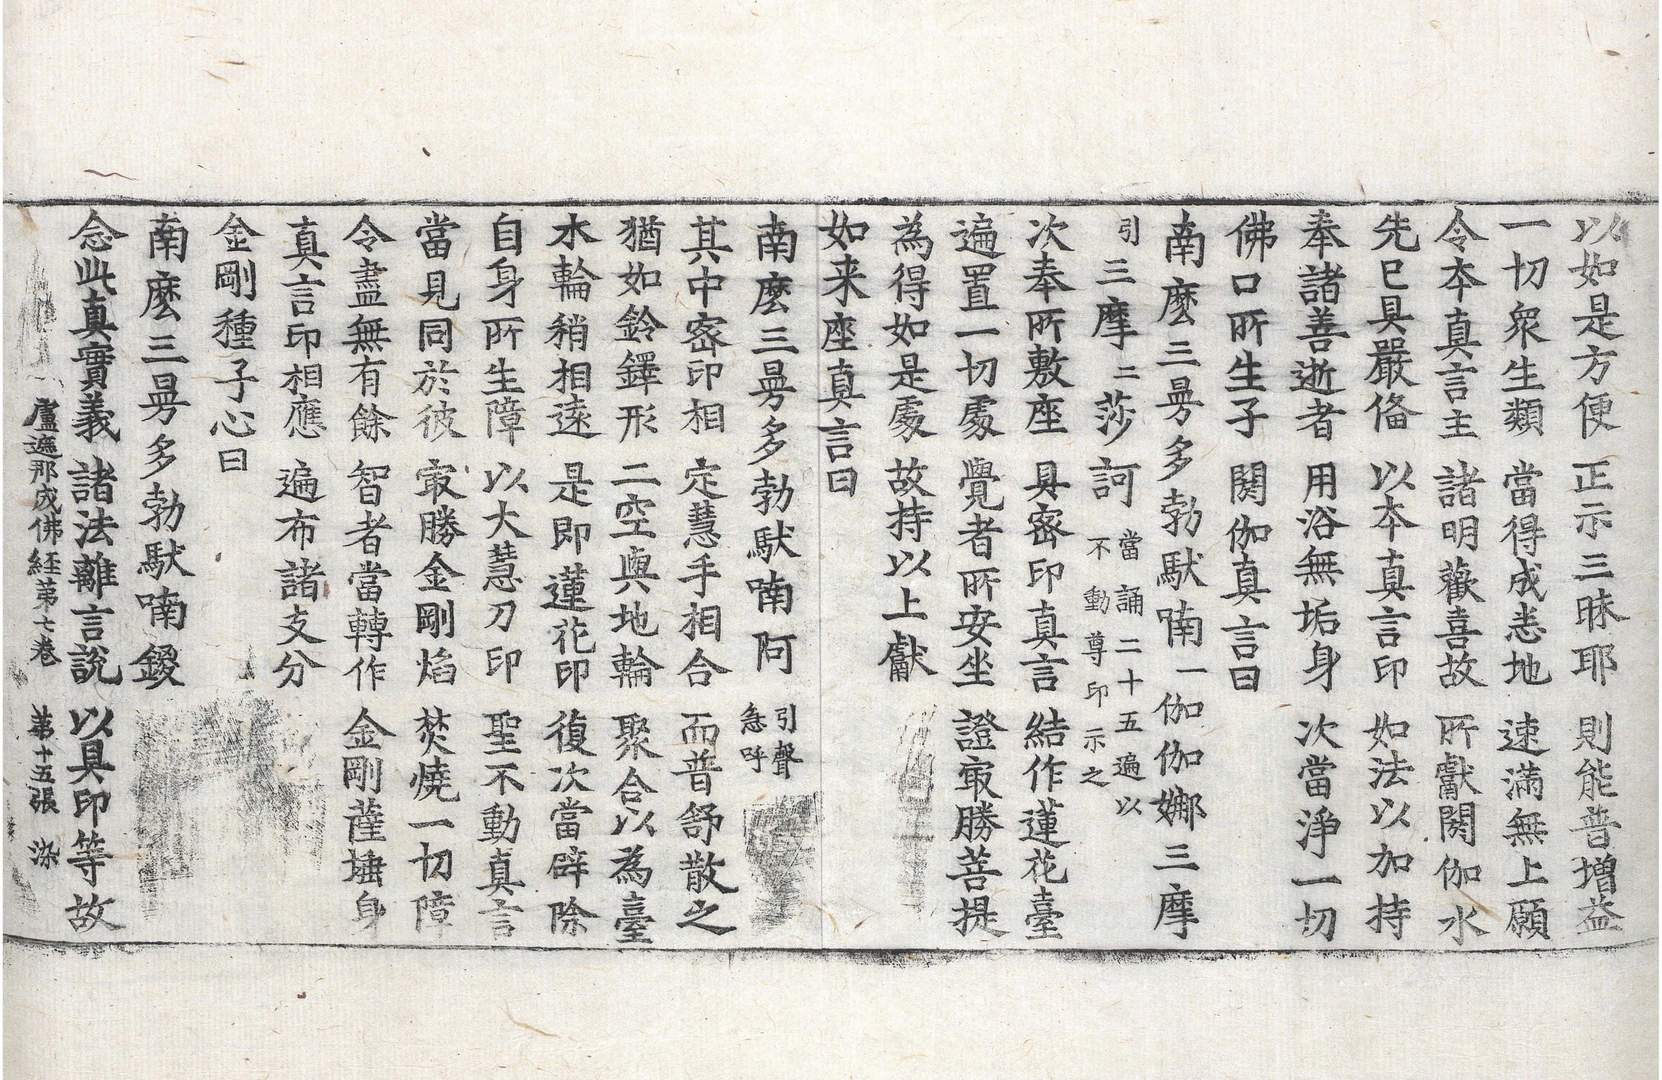 以如是方便　正示三昧耶　則能普增益
一切衆生類　當得成悉地　速滿無上願
令本真言主　諸明歡喜故　所獻閼伽水
先已具嚴俻　以本真言印　如法以加持
奉諸善逝者　用浴無垢身　次當淨一切
佛口所生子　閼伽真言曰
南麼三曼多勃馱喃一伽伽娜三摩
引三摩二莎訶當誦二十五遍以不動尊印示之
次奉所敷座　具密印真言　結作蓮花臺
遍置一切處　覺者所安坐　證㝡勝菩提
為得如是處　故持以上獻
如来座真言曰
南麼三曼多勃馱喃阿引聲急呼
其中密印相　定慧手相合　而普舒散之
猶如鈴鐸形　二空與地輪　聚合以為臺
水輪稍相遠　是即蓮花印　復次當辟除
自身所生障　以大慧刀印　聖不動真言
當見同於彼　㝡勝金剛焰　焚燒一切障
令盡無有餘　智者當轉作　金剛薩埵身
真言印相應　遍布諸支分
金剛種子心曰
南麼三曼多勃馱喃鑁
念此真實義　諸法離言說　以具印等故
盧遮那成佛經第七卷　第十五張　染